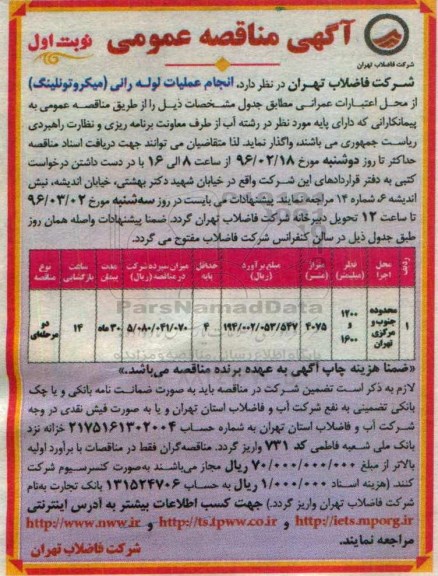 آگهی مناقصه عمومی
نوبت اول
شرکت فاضلاب تهران
شرکت فاضلاب تهران در نظر دارد، انجام عملیات لوله رانی (میکروتونلینگ)
از محل اعتبارات عمرانی مطابق جدول مشخصات ذیل را از طریق مناقصه عمومی به
پیمانکارانی که دارای پایه مورد نظر در رشته آب از طرف معاونت برنامه ریزی و نظارت راهبردی
ریاست جمهوری می باشند، واگذار نماید. لذا متقاضیان می توانند جهت دریافت اسناد مناقصه
حداکثر تا روز دوشنبه مورخ ۹۶/۰۲/۱۸ از ساعت ۸ الی ۱۶ با در دست داشتن درخواست
کتبی به دفتر قراردادهای این شرکت واقع در خیابان شهید دکتر بهشتی، خیابان اندیشه، نبش
اندیشه ۶، شماره ۱۴ مراجعه نمایند. پیشنهادات می بایست در روز سه‌شنبه مورخ ۹۶/۰۳/۰۲
تا ساعت ۱۲ تحویل دبیرخانه شرکت فاضلاب تهران گردد. ضمنا پیشنهادات واصله همان روز
طبق جدول ذیل در سالن کنفرانس شرکت فاضلاب مفتوح می گردد.
ردیف محل اجرا قطر (میلیمتر) متراژ (متر) مبلغ برآورد (ریال) حداقل پایه میزان سپرده شرکت در مناقصه (ریال) مدت پیمان ساعت بازگشایی نوع مناقصه
۱ محدوده جنوب و مرکزی تهران ۱۲۰۰ و ۱۶۰۰ ۴۰۷۵ ۱۹۴/۰۰۲/۰۵۳/۵۴۷ ۴ ۵/۰۸۰/۰۴۱/۰۷۰ ۳۰ ماه ۱۴ دو مرحله‌ای
ParsNamadData
پایگاه اطلاع رسانی مناقصه و مزایده
«ضمنا هزینه چاپ آگهی به عهده برنده مناقصه می‌باشد.»
لازم به ذکر است تضمین شرکت در مناقصه باید به صورت ضمانت نامه بانکی و یا چک
بانکی تضمینی به نفع شرکت آب و فاضلاب استان تهران و یا به صورت فیش نقدی در وجه
شرکت آب و فاضلاب استان تهران به شماره حساب ۲۱۷۵۱۶۱۳۰۲۰۰۴ خزانه نزد
بانک ملی شعبه فاطمی کد ۷۳۱ واریز گردد. مناقصه‌گران فقط در مناقصات با برآورد اولیه
بالاتر از مبلغ ۷۰/۰۰۰/۰۰۰/۰۰۰ ریال مجاز می‌باشند به‌صورت کنسرسیوم شرکت
کنند. (هزینه اسناد ۱/۰۰۰/۰۰۰ ریال به حساب ۱۳۱۵۲۴۷۰۶ بانک تجارت به‌نام
شرکت فاضلاب تهران واریز گردد.) جهت کسب اطلاعات بیشتر به آدرس اینترنتی
http://iets.mporg.ir و http://ts.tpww.co.ir و http://www.nww.ir
مراجعه نمایند.
شرکت فاضلاب تهران